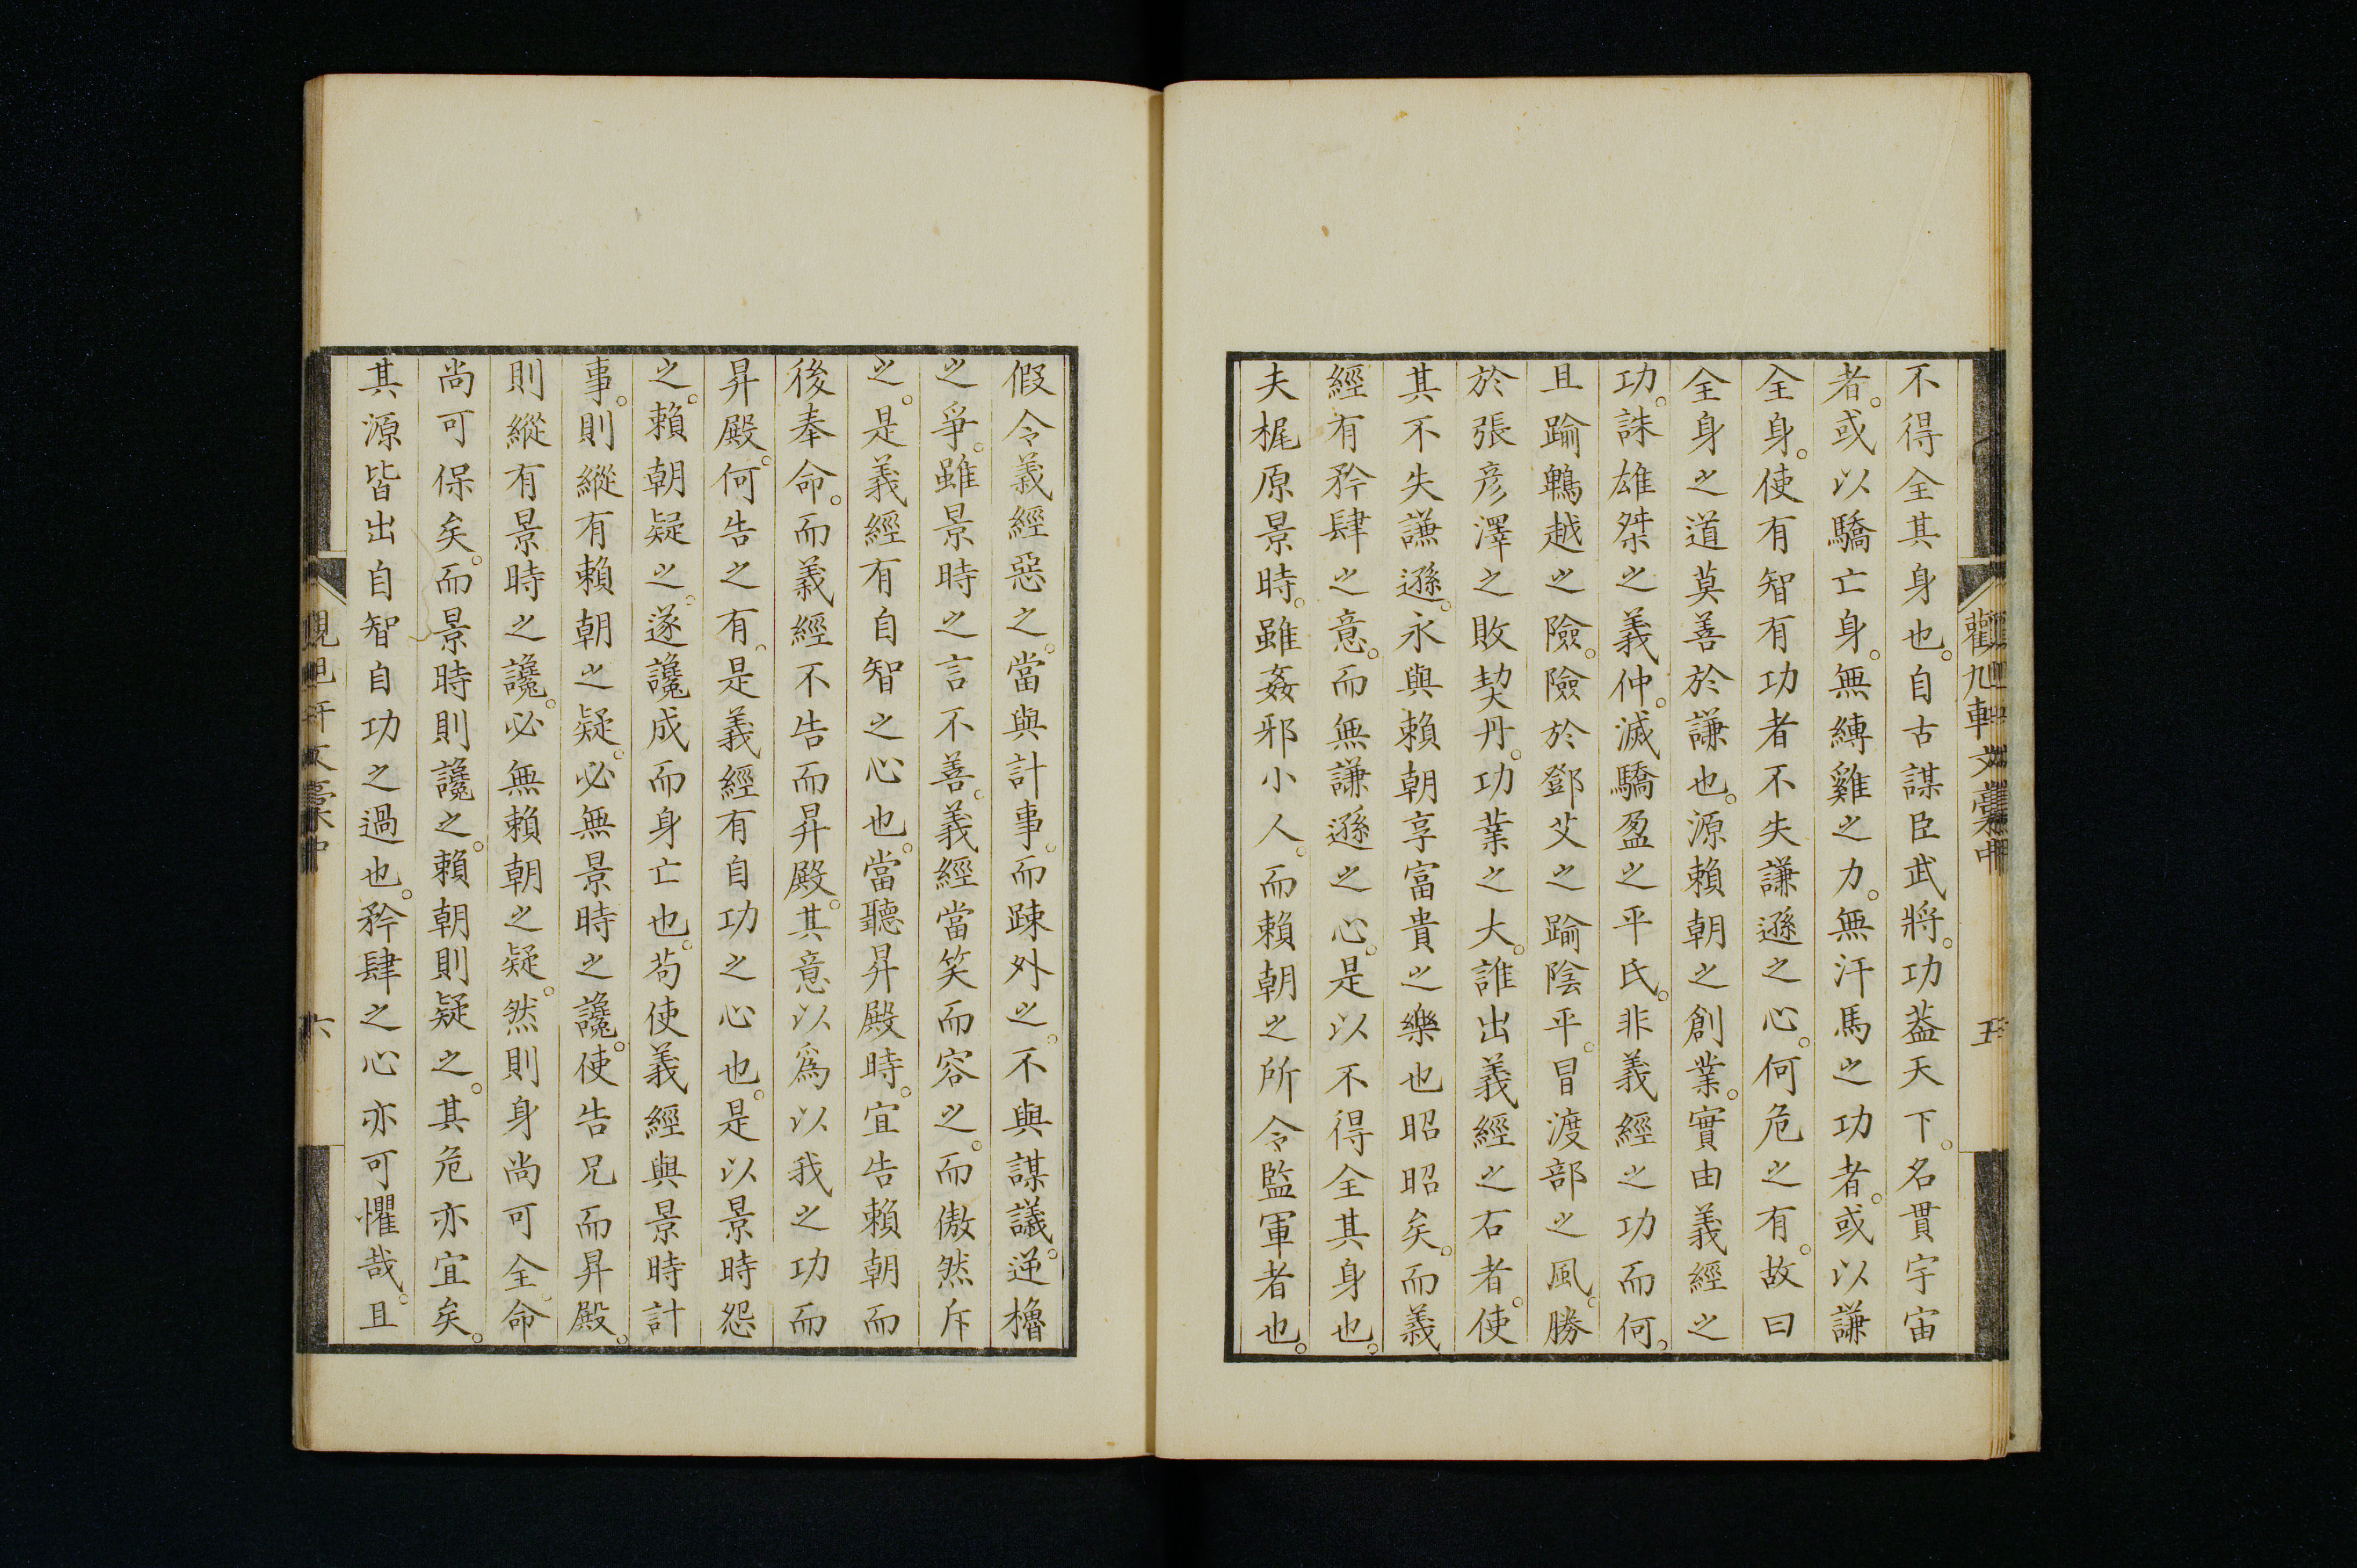 觀旭軒文稾中
五
不得全其身也。自古謀臣武將。功葢天下。名貫宇宙
者。或以驕亡身。無縛雞之力。無汗馬之功者。或以謙
全身。使有智有功者不失謙遜之心。何危之有。故曰
全身之道莫善於謙也。源賴朝之創業。實由義經之
功。誅雄桀之義仲。滅驕盈之平氏。非義經之功而何。
且踰鵯越之險。險於鄧艾之踰陰平。冒渡部之風。勝
於張彦澤之敗契丹。功業之大。誰出義經之右者。使
其不失謙遜。永與賴朝享富貴之樂也昭昭矣。而義
經有矜肆之意。而無謙遜之心。是以不得全其身也。
夫梶原景時。雖姦邪小人。而賴朝之所令監軍者也。
假令義經惡之。當與計事。而踈外之。不與謀議。逆櫓
之爭。雖景時之言不善。義經當笑而容之。而傲然斥
之。是義經有自智之心也。當聽昇殿時。宜告賴朝而
後奉命。而義經不告而昇殿。其意以爲以我之功而
昇殿。何告之有。是義經有自功之心也。是以景時怨
之。賴朝疑之。遂讒成而身亡也。苟使義經與景時計
事。則縱有賴朝之疑。必無景時之讒。使告兄而昇殿。
則縱有景時之讒。必無賴朝之疑。然則身尚可全。命
尚可保矣。而景時則讒之。賴朝則疑之。其危亦宜矣。
其源皆出自智自功之過也。矜肆之心亦可懼哉。且
觀旭軒文稾中
六